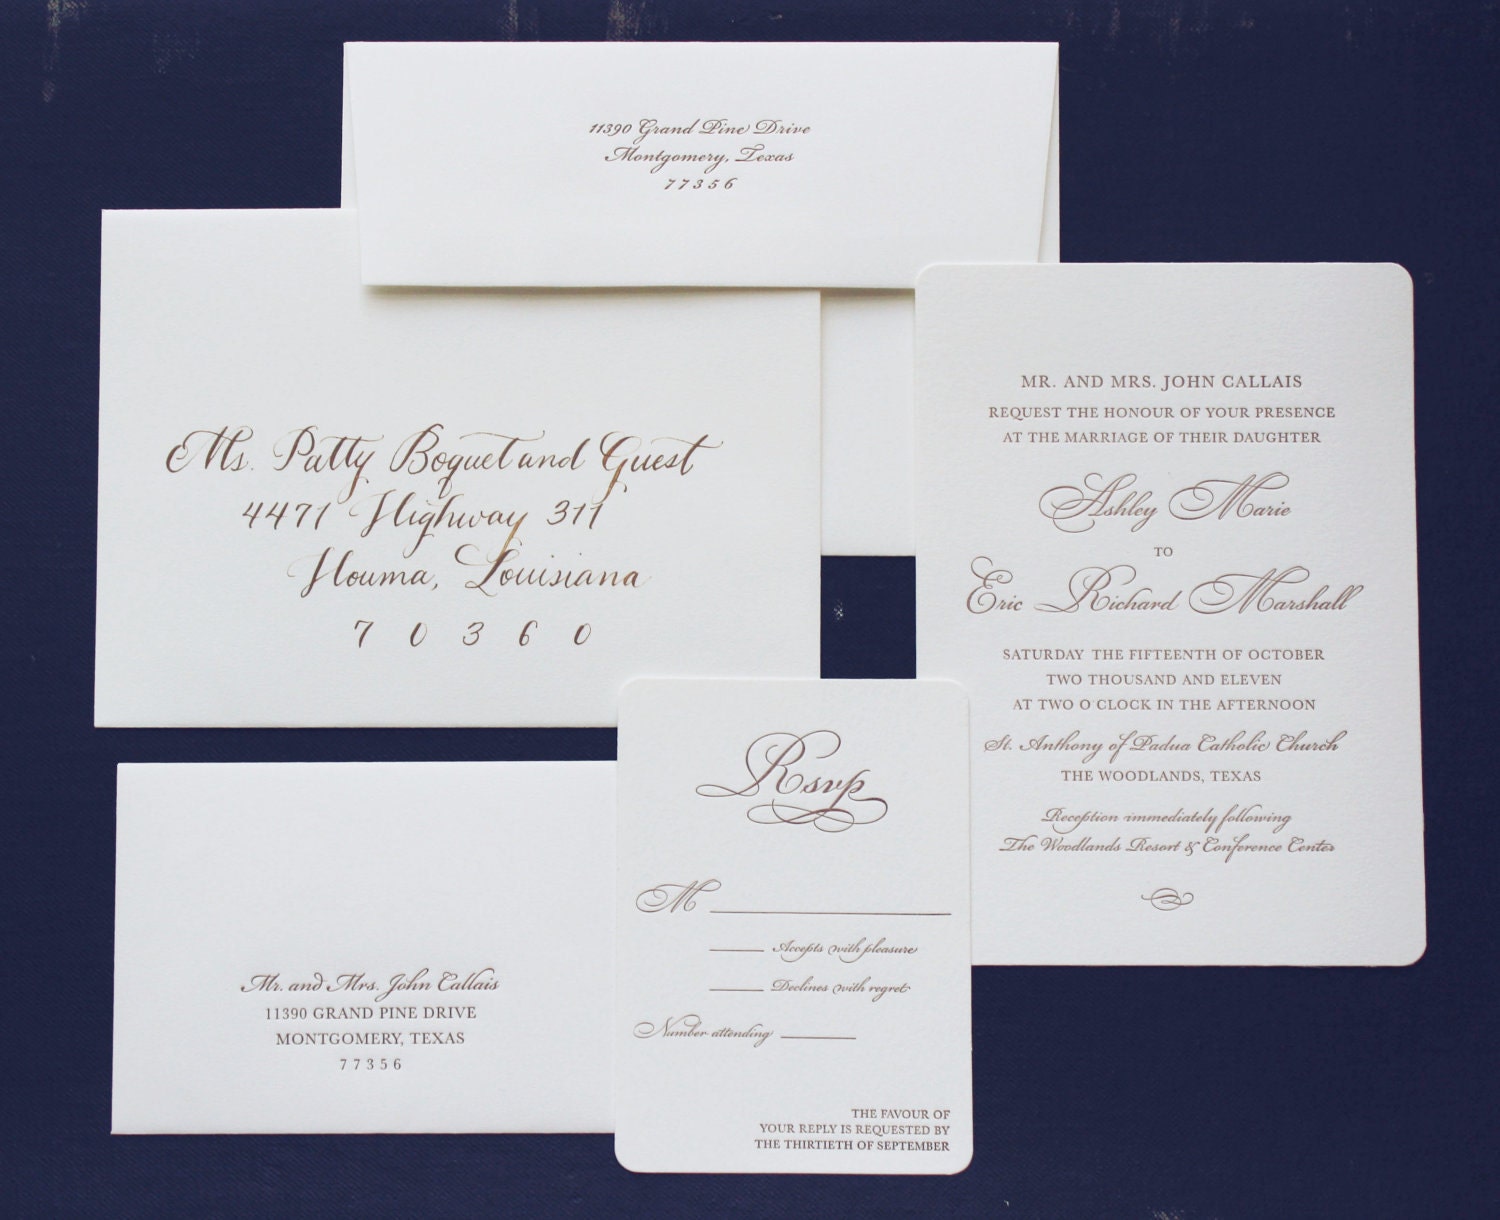 11390 Grand Pine Drive
Montgomery, Texas
77356
Ms. Patty Boquet and Guest
4471 Highway 311
Houma, Louisiana
7 0 3 6 0
MR. AND MRS. JOHN CALLAIS
REQUEST THE HONOUR OF YOUR PRESENCE
AT THE MARRIAGE OF THEIR DAUGHTER
Ashley Marie
TO
Eric Richard Marshall
SATURDAY THE FIFTEENTH OF OCTOBER
TWO THOUSAND AND ELEVEN
AT TWO O CLOCK IN THE AFTERNOON
St. Anthony of Padua Catholic Church
THE WOODLANDS, TEXAS
Reception immediately following
The Woodlands Resort & Conference Center
Mr. and Mrs. John Callais
11390 GRAND PINE DRIVE
MONTGOMERY, TEXAS
77356
Rsvp
M
Accepts with pleasure
Declines with regret
Number attending
THE FAVOUR OF
YOUR REPLY IS REQUESTED BY
THE THIRTIETH OF SEPTEMBER